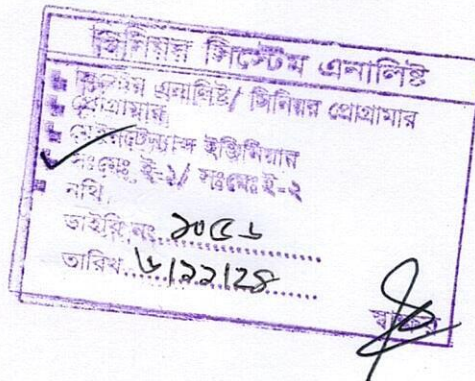 সিনিয়র সিস্টেম এনালিষ্ট
সিস্টেম এনালিষ্ট/ সিনিয়র প্রোগ্রামার
প্রোগ্রামার
মেইনটেন্যান্স ইঞ্জিনিয়ার
সঃমেঃ ই-১/ সঃমেঃ ই-২
নথি
ডাইরি নং ১০৫৬
তারিখ ৬/১১/২৪
স্বাক্ষর